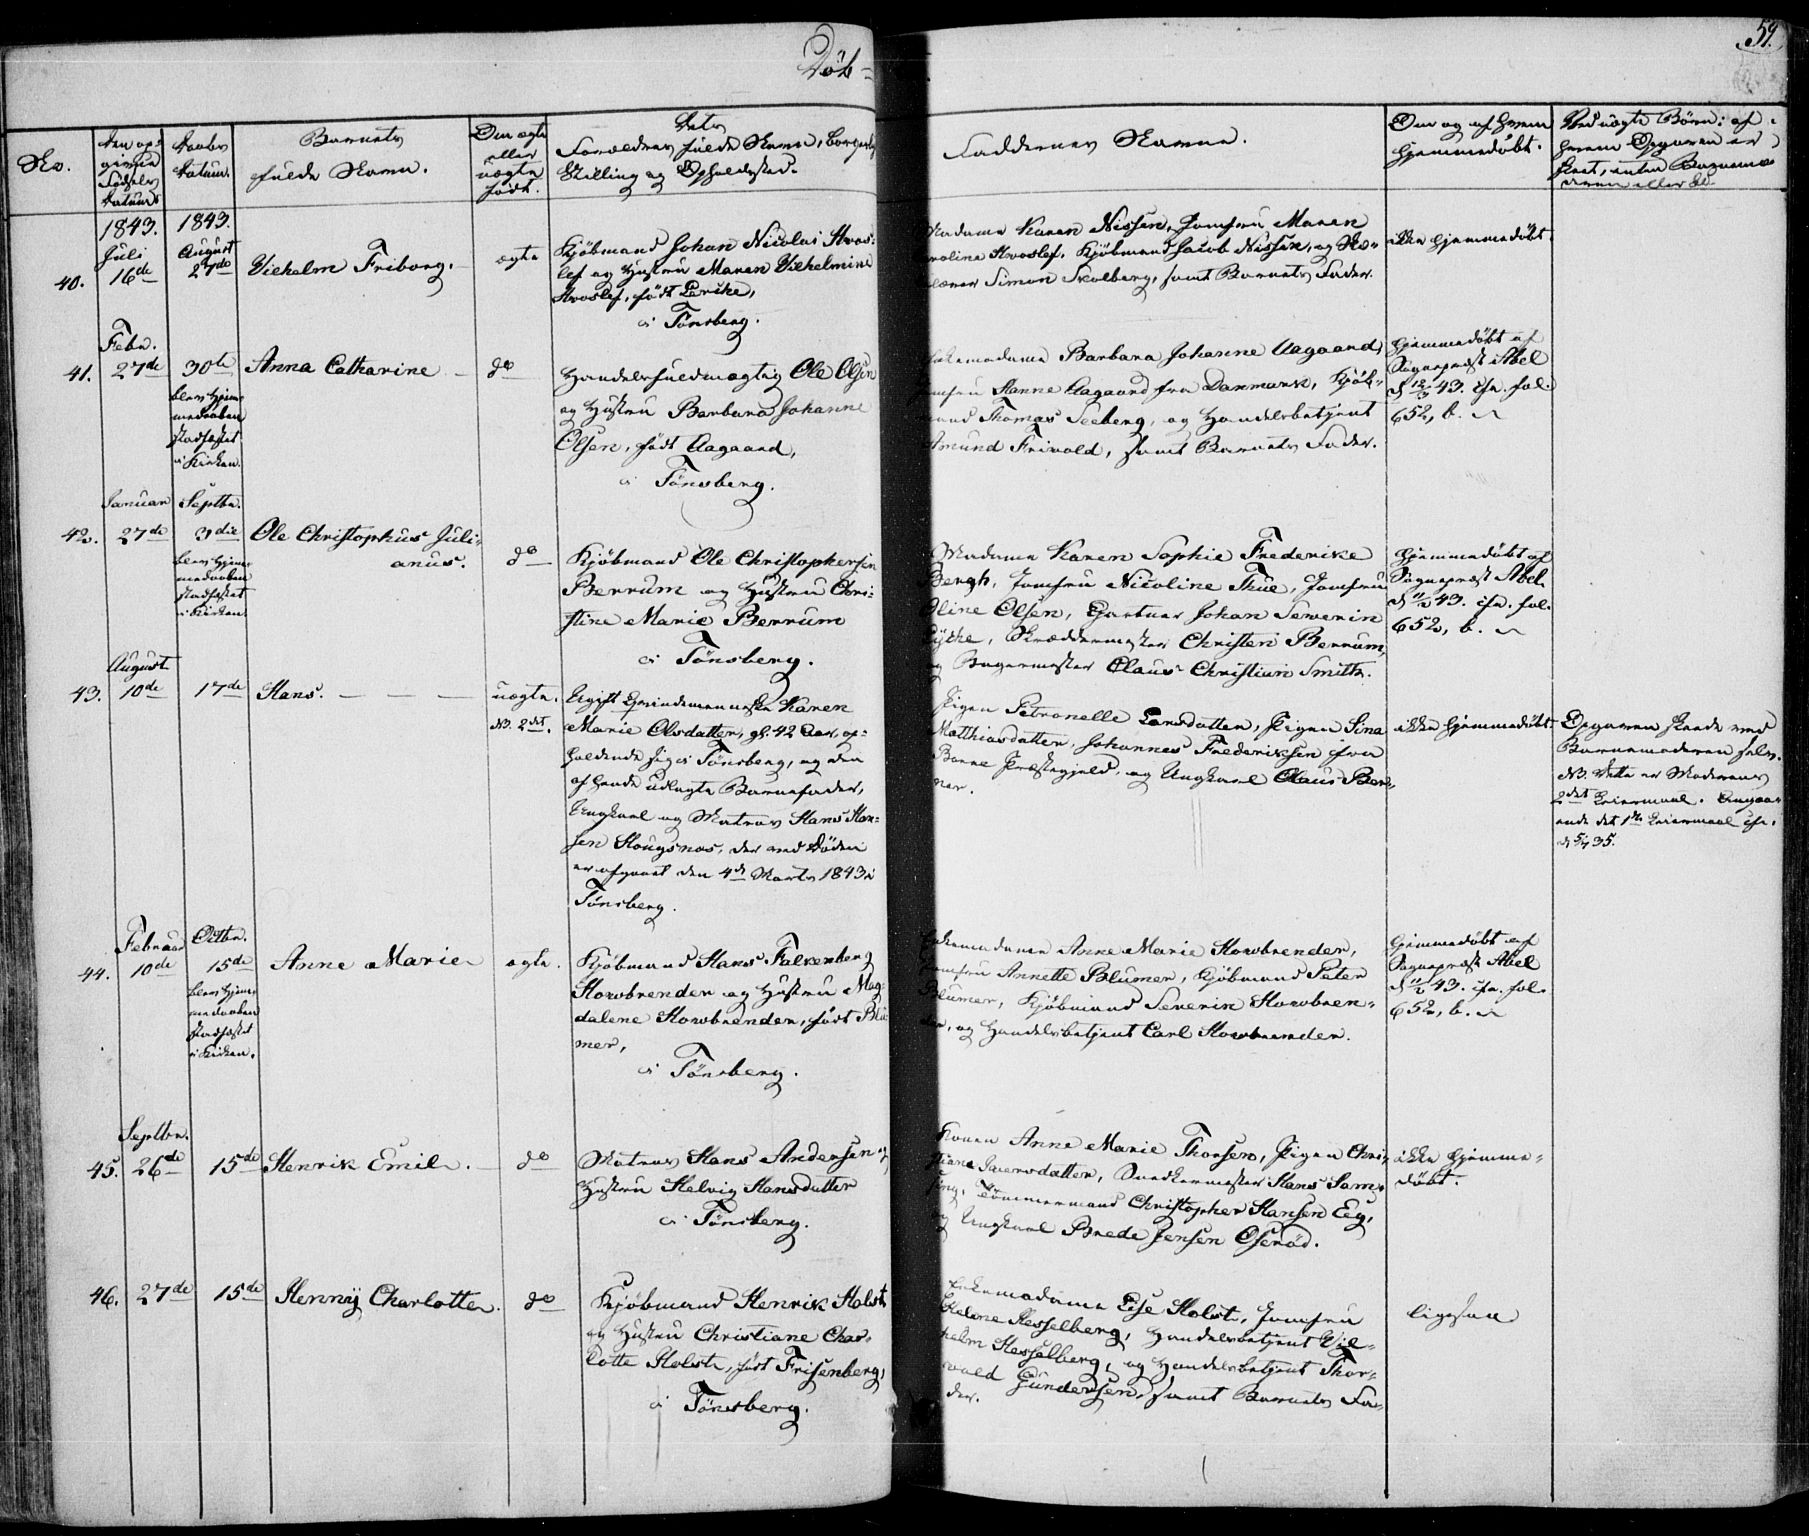 Døb-
59.
No.
Den op-
givne
Fødsels
Datum.
Daabs
Datum.
Barnets
fulde Navn.
Om ægte
eller
uægte
født.
Dets
Forældres fulde Navne, borgerlig
Stilling og Opholdssted.
Faddernes Navne.
Om og af hvem
hjemmedøbt.
Ved uægte Børn: af
hvem Opgaven er
skeet, enten Barnemo-
deren eller
40.
1843.
Juli
16de
1843.
August
27de
Vilhelm Friborg.
ægte
Kjøbmand Johan Nicolai Hvos-
lef og Hustru Maren Vilhelmine
Hvoslef, født Lerche,
i Tönsberg.
Madame Karen Nissen, Jomfru Maren
Karoline Hvoslef, Kjøbmand Jacob Nissen, og
Simon Stolberg, samt Barnets Fader.
ikke hjemmedøbt.
41.
Febr.
27de
30te
blev hjem-
medaaben
stadfæstet
i Kirken.
Anna Catharine
do
Handelsfuldmægtig Ole Olsen
og Hustru Barbara Johanne
Olsen, født Aagaard,
i Tönsberg.
Enkemadame Barbara Johanne Aagaard,
Jomfru Hanne Aagaard fra Danmark, Kjøb-
mand Thomas Seeberg, og Handelsbetjent
Amund Frivold, samt Barnets Fader.
Hjemmedøbt af
Sognepræst Abel
d 12/3 43. cfr. fol.
652, b.
42.
Januar
27de
Septbr.
3die
blev hjem-
medaaben
stadfæstet
i Kirken.
Ole Christophus Juli-
anus.
do
Kjøbmand Ole Christophersen
Berrum og Hustru Chri-
stine Marie Berrum
i Tönsberg.
Madame Karen Sophie Frederike
Bergh, Jomfru Nicoline Thue, Jomfru
Oline Olsen, Gartner Johan Severin
Lÿche, Skræddermester Christen Berrum,
og Bagermester Claus Christian Smith.
Hjemmedøbt af
Sognepræst Abel
d 11/2 43. cfr. fol.
652, b.
43.
August
10de
17de
Hans.
uægte.
NB. 2det.
Ugift Qvindemenneske Karen
Marie Olsdatter, gl. 42 Aar, op-
holdende sig i Tönsberg, og den
af hende udlagte Barnefader,
Ungkarl og Matros Hans Han-
sen Hougsnæs, der ved Døden
er afgaaet den 4de Marts 1843 i
Tönsberg.
Pigen Petronelle Larsdatter, Pigen Sina
Matthiasdatter, Johannes Frederiksen fra
Borre Præstegjeld, og Ungkarl Claus Ber-
ner.
ikke hjemmedøbt.
Opgaven skeede ved
Barnemoderen selv.
NB. Dette er Moderens
2det Leiermaal. Angaa-
ende det 1ste Leiermaal cfr.
d 5/7 35.
44.
Februar
10de
Octbr.
15de
blev hjem-
medaaben
stadfæstet
i Kirken.
Anne Marie
ægte.
Kjøbmand Hans Falkenberg
Howbrender og Hustru Mag-
dalene Howbrender, født Blü-
mer,
i Tönsberg.
Enkemadame Anne Marie Howbrender,
Jomfru Annette Blümer, Kjøbmand Peter
Blümer, Kjøbmand Severin Howbren-
der, og Handelsbetjent Carl Howbrender.
Hjemmedøbt af
Sognepræst Abel
d 11/2 43. cfr. fol.
652, b.
45.
Septbr.
26de
15de
Henrik Emil.
do
Matros Hans Andersen og
Hustru Helvig Hansdatter
i Tönsberg.
Konen Anne Marie Thorsen, Pigen Chri-
stiane Iversdatter, Snedkermester Hans Sam-
sing, Tömmermand Christopher Hansen Eeg,
og Ungkarl Brede Jensen Oseröd.
ikke hjemme-
døbt.
46.
27de
15de
Hennÿ Charlotte.
do
Kjöbmand Henrik Holst
og Hustru Christiane Char-
lotte Holst, født Frisenberg,
i Tönsberg.
Enkemadame Else Holst, Jomfru
Helene Hesselberg, Handelsbetjent Vil-
helm Hesselberg, og Handelsbetjent Thor-
vald Gundersen, samt Barnets Fa-
der.
ligesaa